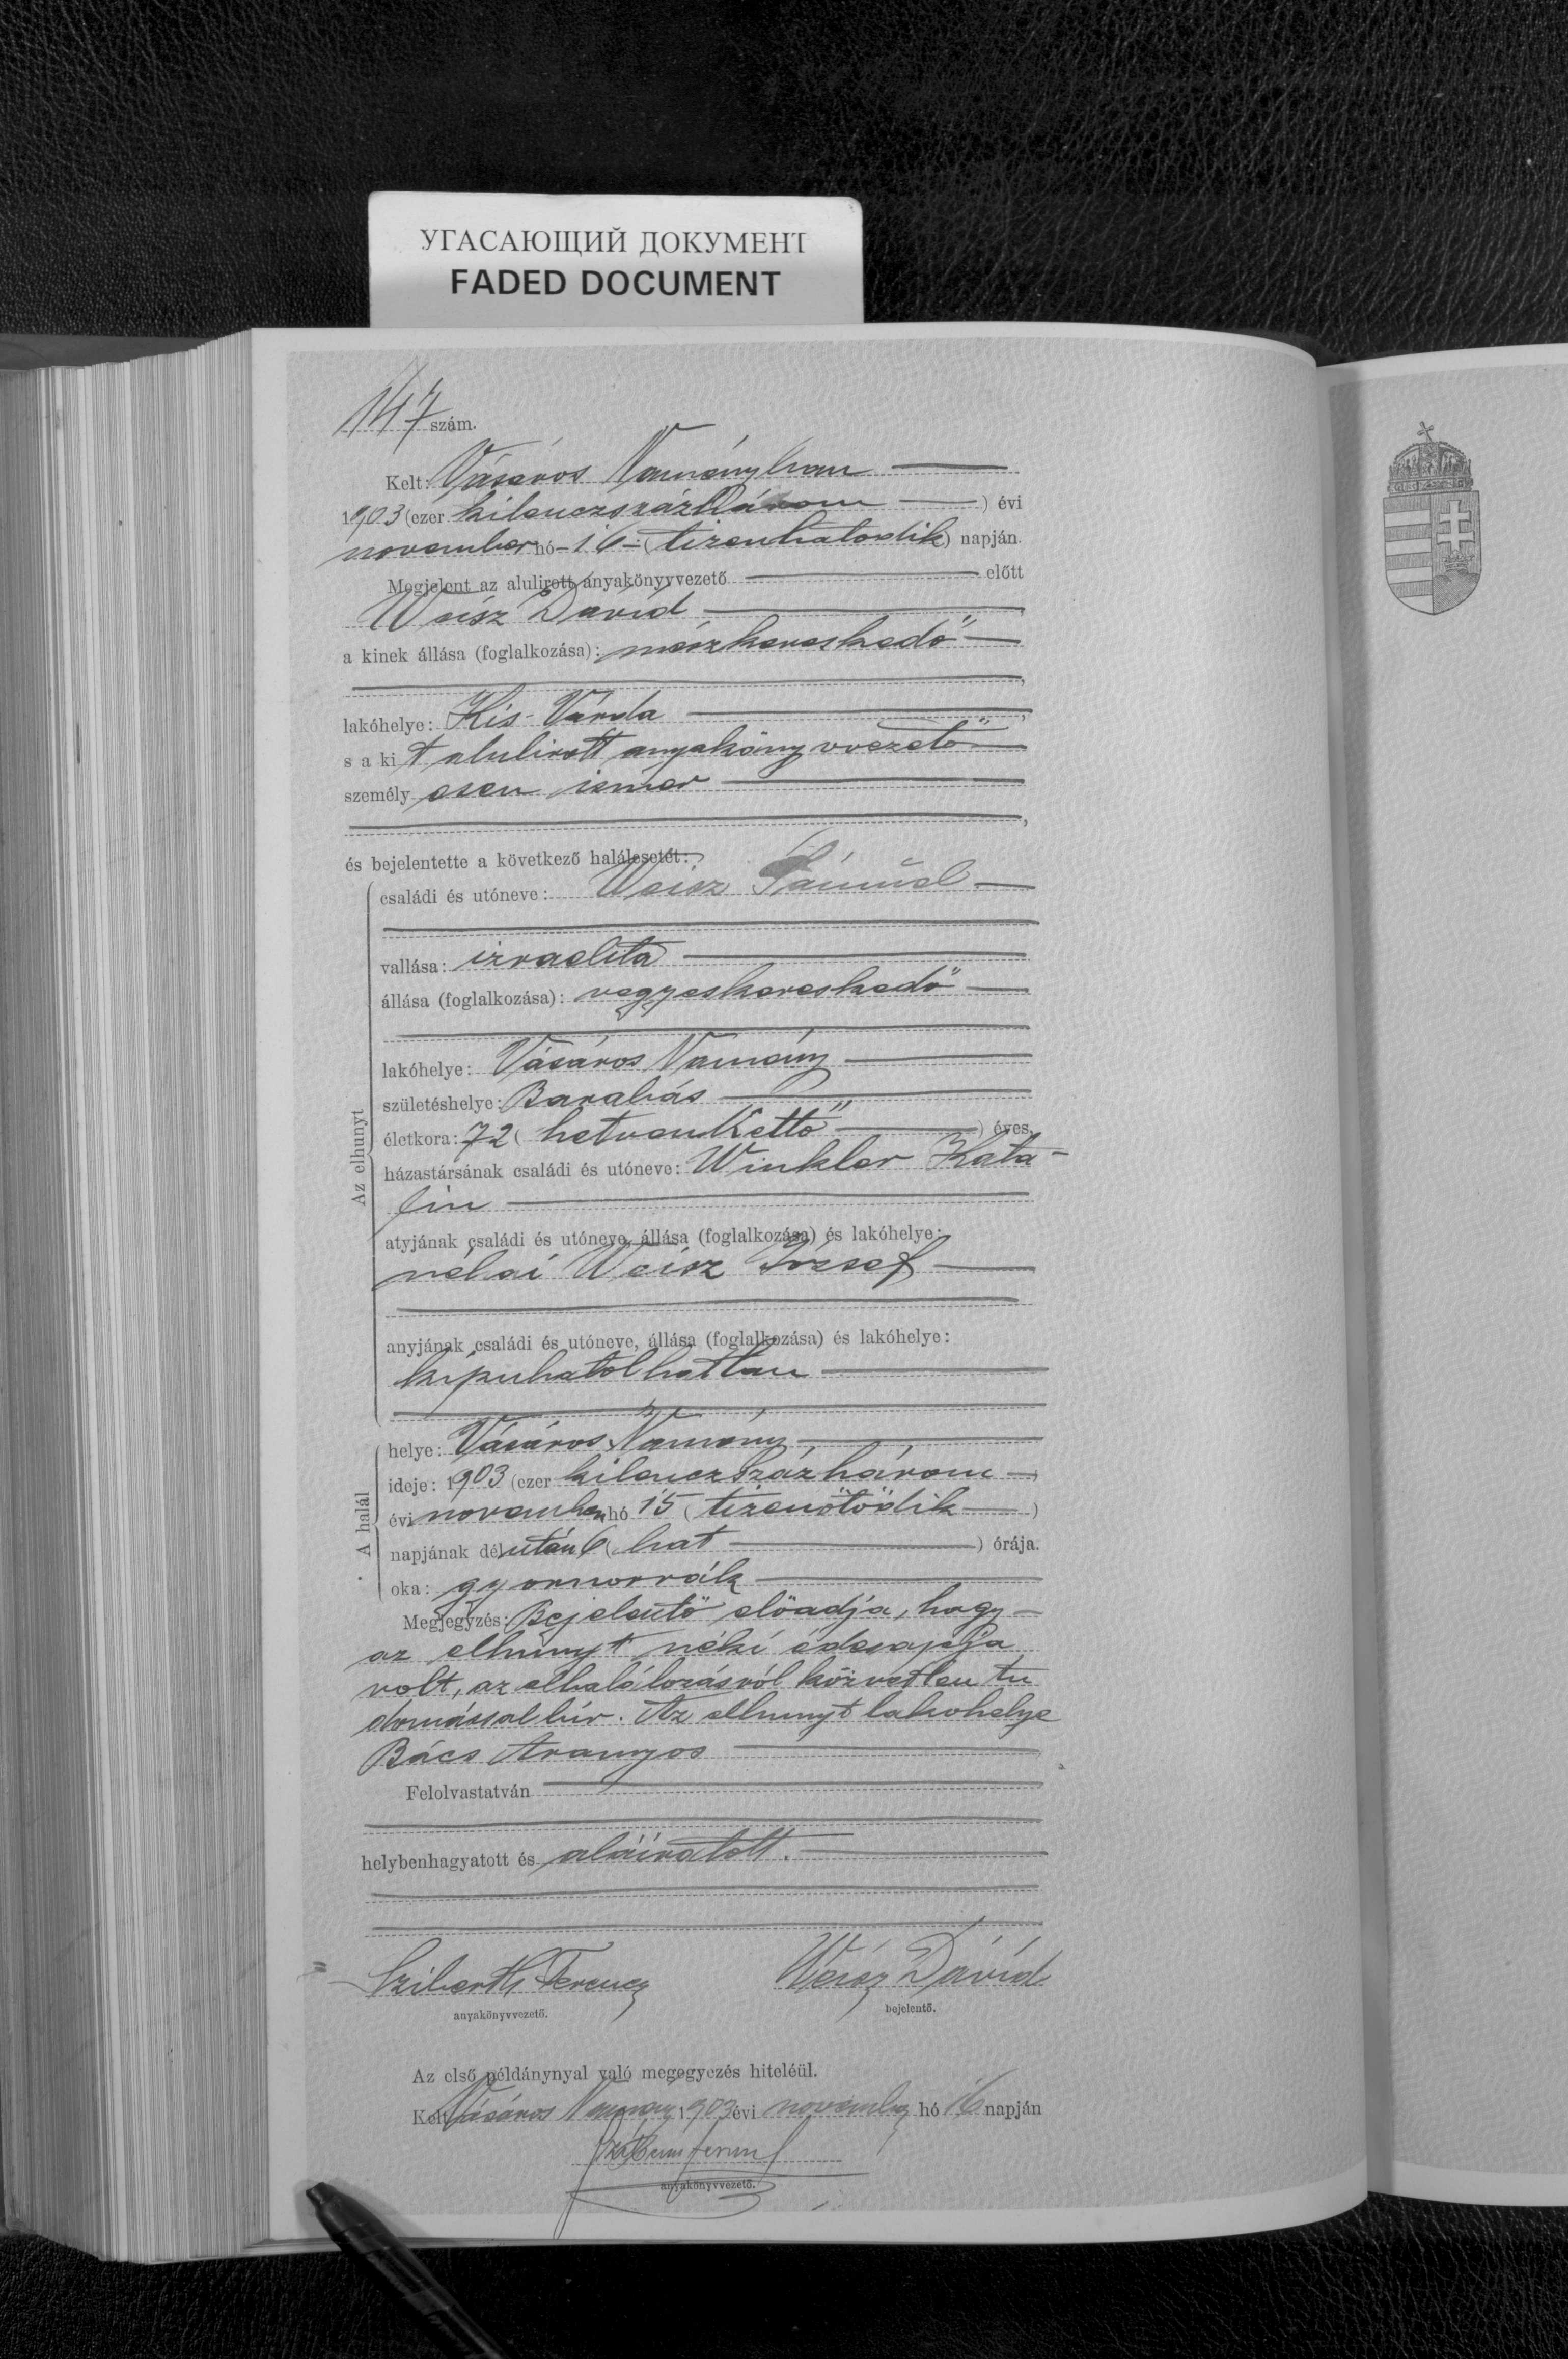 УГАСАЮЩИЙ ДОКУМЕНТ
FADED DOCUMENT
147 szám.
Kelt: Vásáros Naményban
1903 (ezer kilenczszázhárom ) évi
november hó 16 (tizenhatodik) napján.
Megjelent az alulirott anyakönyvvezető előtt
Weisz Dávid
a kinek állása (foglalkozása): mészkereskedő
lakóhelye: Kis-Várda
s a kit alulirott anyakönyvvezető
személyesen ismer
és bejelentette a következő halálesetét:
Az elhunyt
családi és utóneve: Weisz Sámuel
vallása: izraelita
állása (foglalkozása): vegyeskereskedő
lakóhelye: Vásáros Namény
születéshelye: Barabás
életkora: 72 (hetvenkettő ) éves,
házastársának családi és utóneve: Winkler Kata-
lin
atyjának családi és utóneve, állása (foglalkozása) és lakóhelye:
néhai Weisz József
anyjának családi és utóneve, állása (foglalkozása) és lakóhelye:
kipuhatolhatlan
A halál
helye: Vásáros Namény
ideje: 1903 (ezer kilenczszázhárom )
évi november hó 15 (tizenötödik )
napjának délután 6 (hat ) órája.
oka: gyomorrák
Megjegyzés: Bejelentő előadja, hogy
az elhunyt néki édesapja
volt, az elhalálozásról közvetlen tu
domással bír. Az elhunyt lakohelye
Bács Aranyos
Felolvastatván
helybenhagyatott és aláíratott.
Ferencz Weisz Dávid
anyakönyvvezető. bejelentő.
Az első példánynyal való megegyezés hiteléül.
Kelt Vásáros Namény 1903 évi november hó 16 napján
anyakönyvvezető.